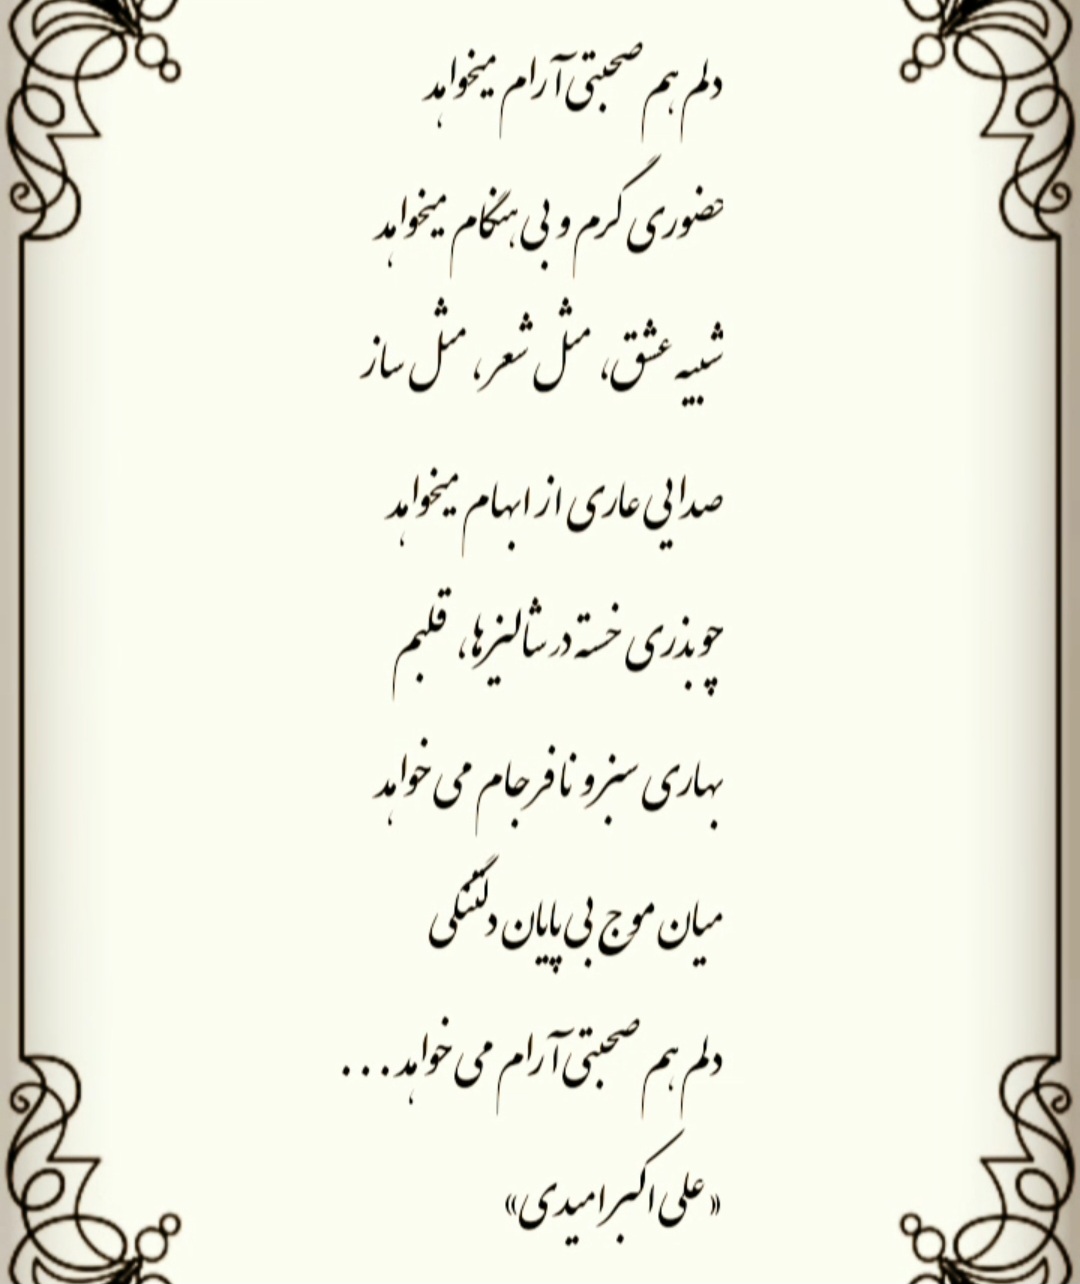 دلم هم صحبتی آرام میخواهد
حضوری گرم و بی هنگام میخواهد
شبیه عشق، مثل شعر، مثل ساز
صدایی عاری از ابهام میخواهد
چو بذری خسته در شالیزها، قلبم
بهاری سبز و نافرجام می خواهد
میان موج بی پایان دلتنگی
دلم هم صحبتی آرام می خواهد...
«علی اکبر امیدی»